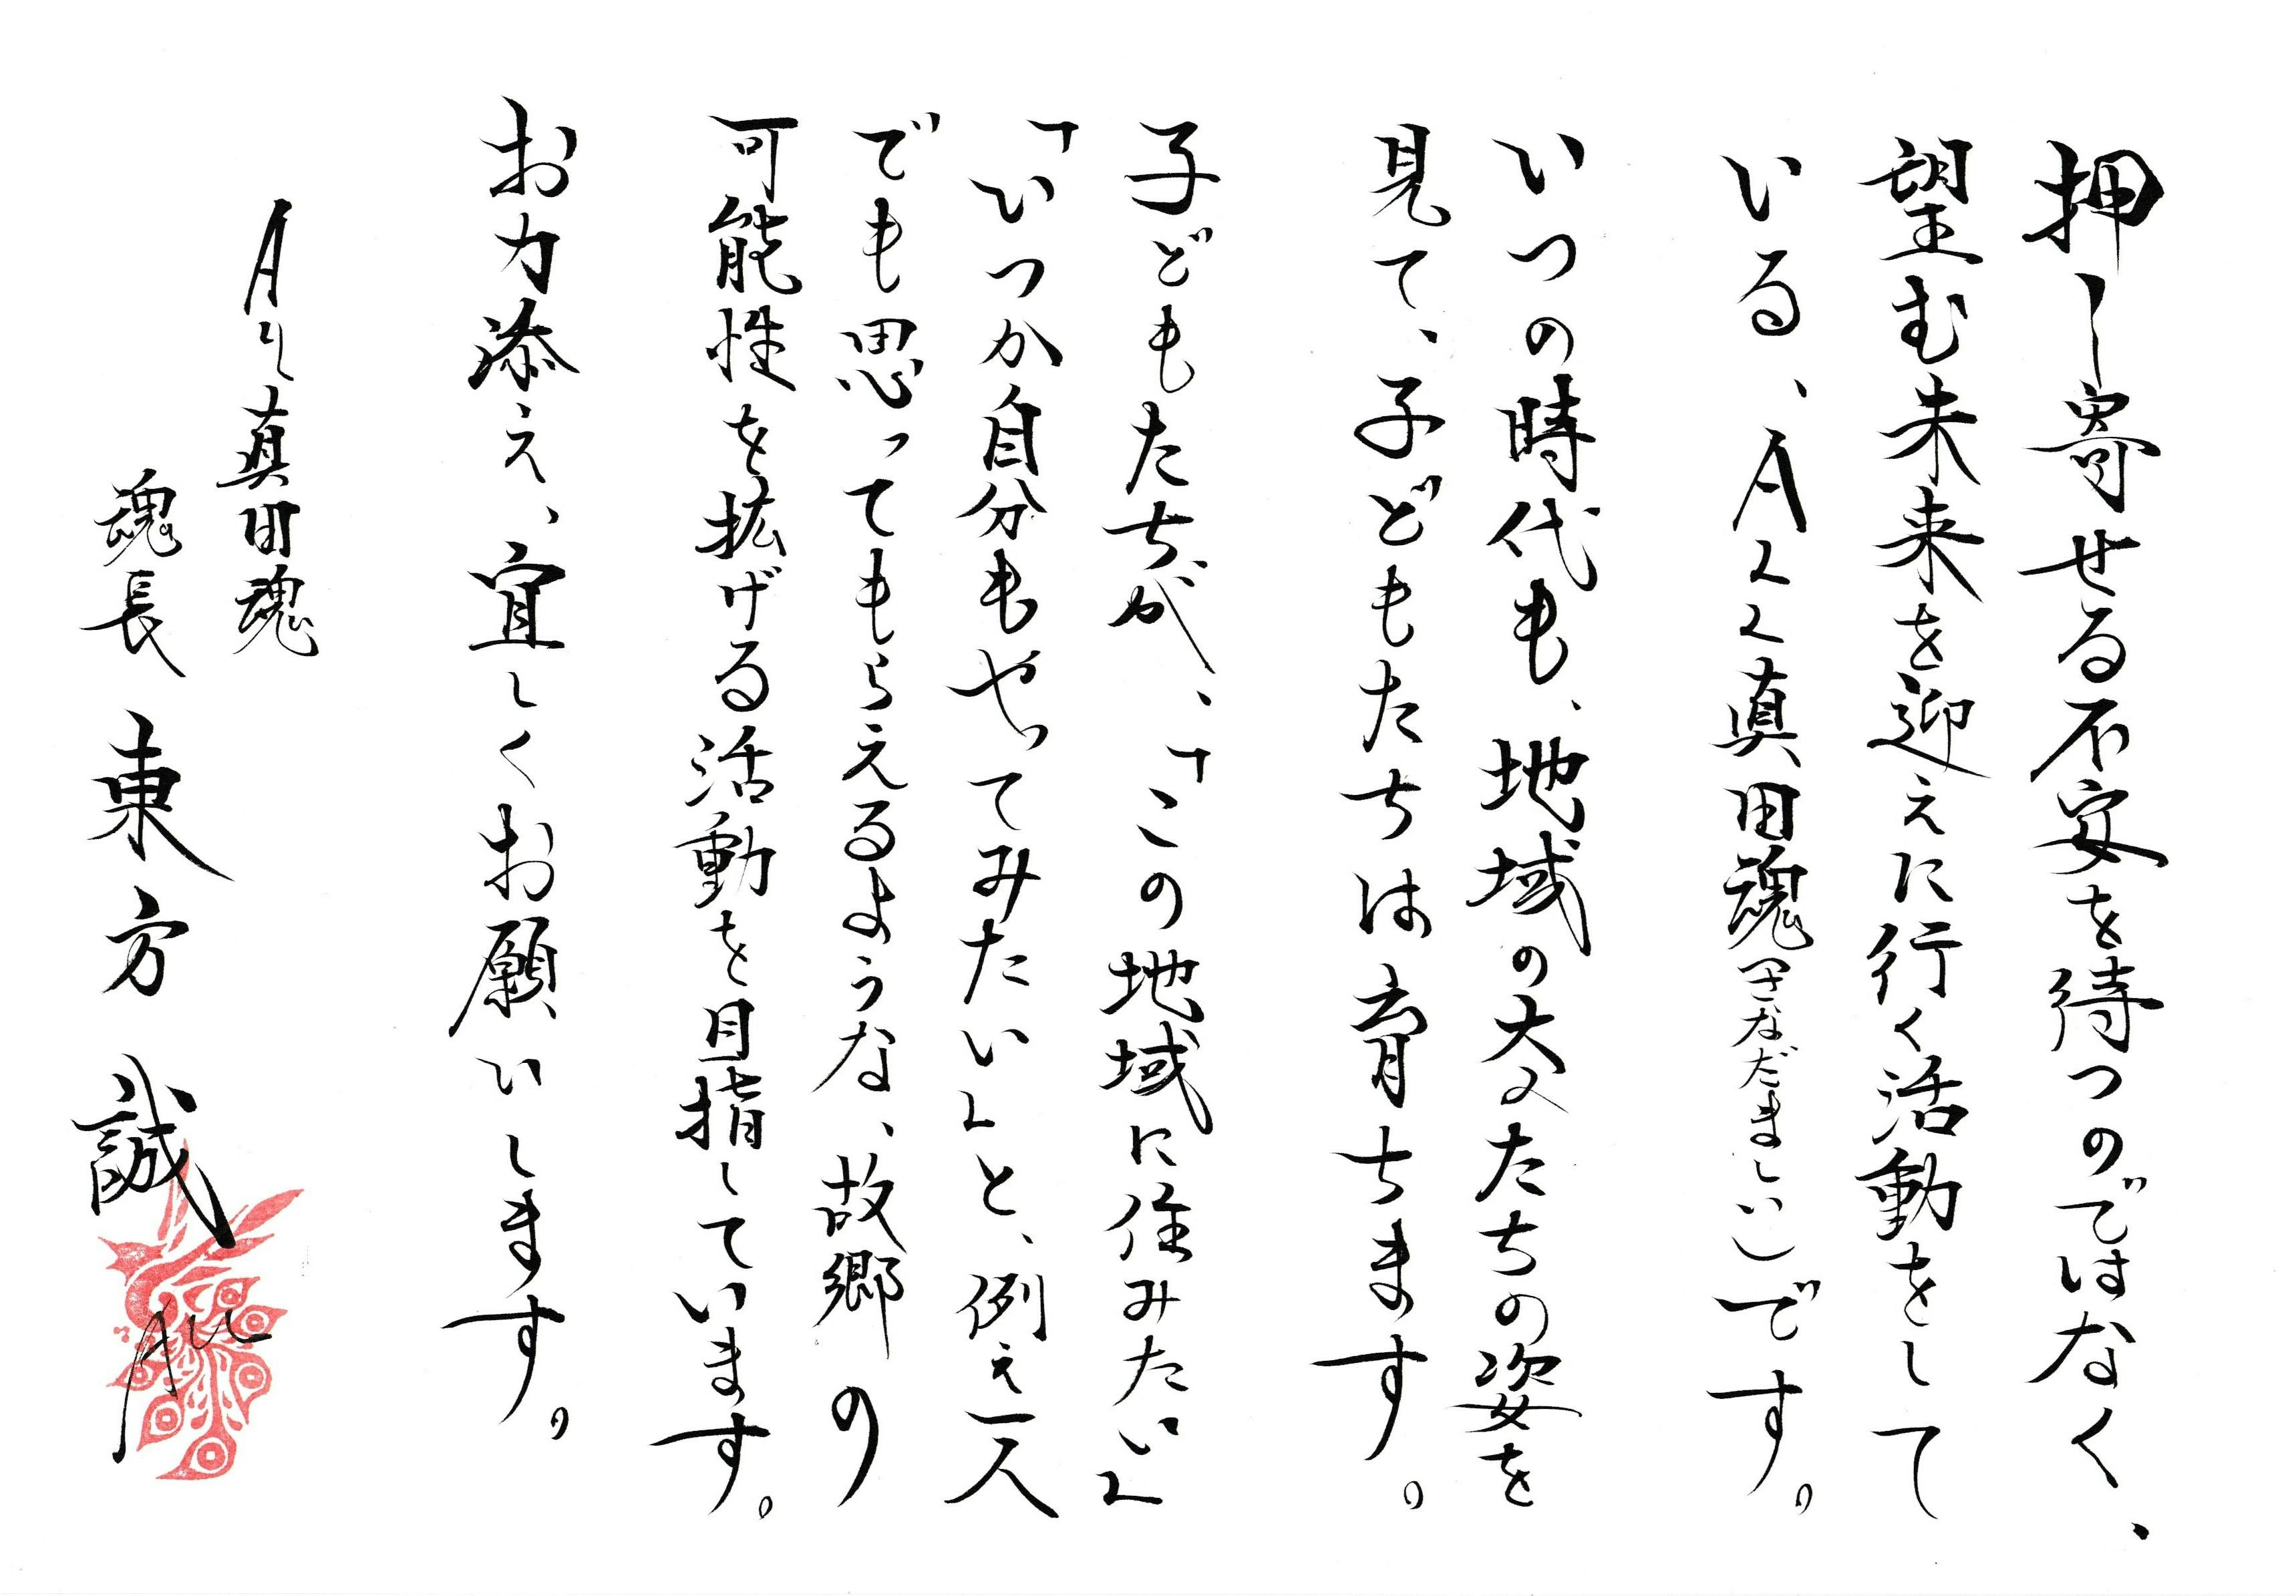 押し寄せる不安を待つのではなく、
望む未来を迎えに行く活動をして
いる、ALL真田魂(さなだましい)です。
いつの時代も、地域の大人たちの姿を
見て、子どもたちは育ちます。
子どもたちが、「この地域に住みたい」
「いつか自分もやってみたい」と、例え一人
でも思ってもらえるような、故郷の
可能性を拡げる活動を目指しています。
お力添え、宜しくお願いします。
ALL真田魂
魂長 東方 誠